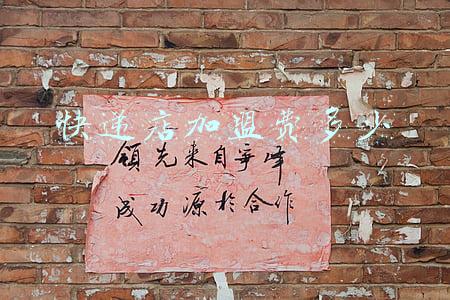 快递店加盟费多少
领先来自争峰
成功源於合作